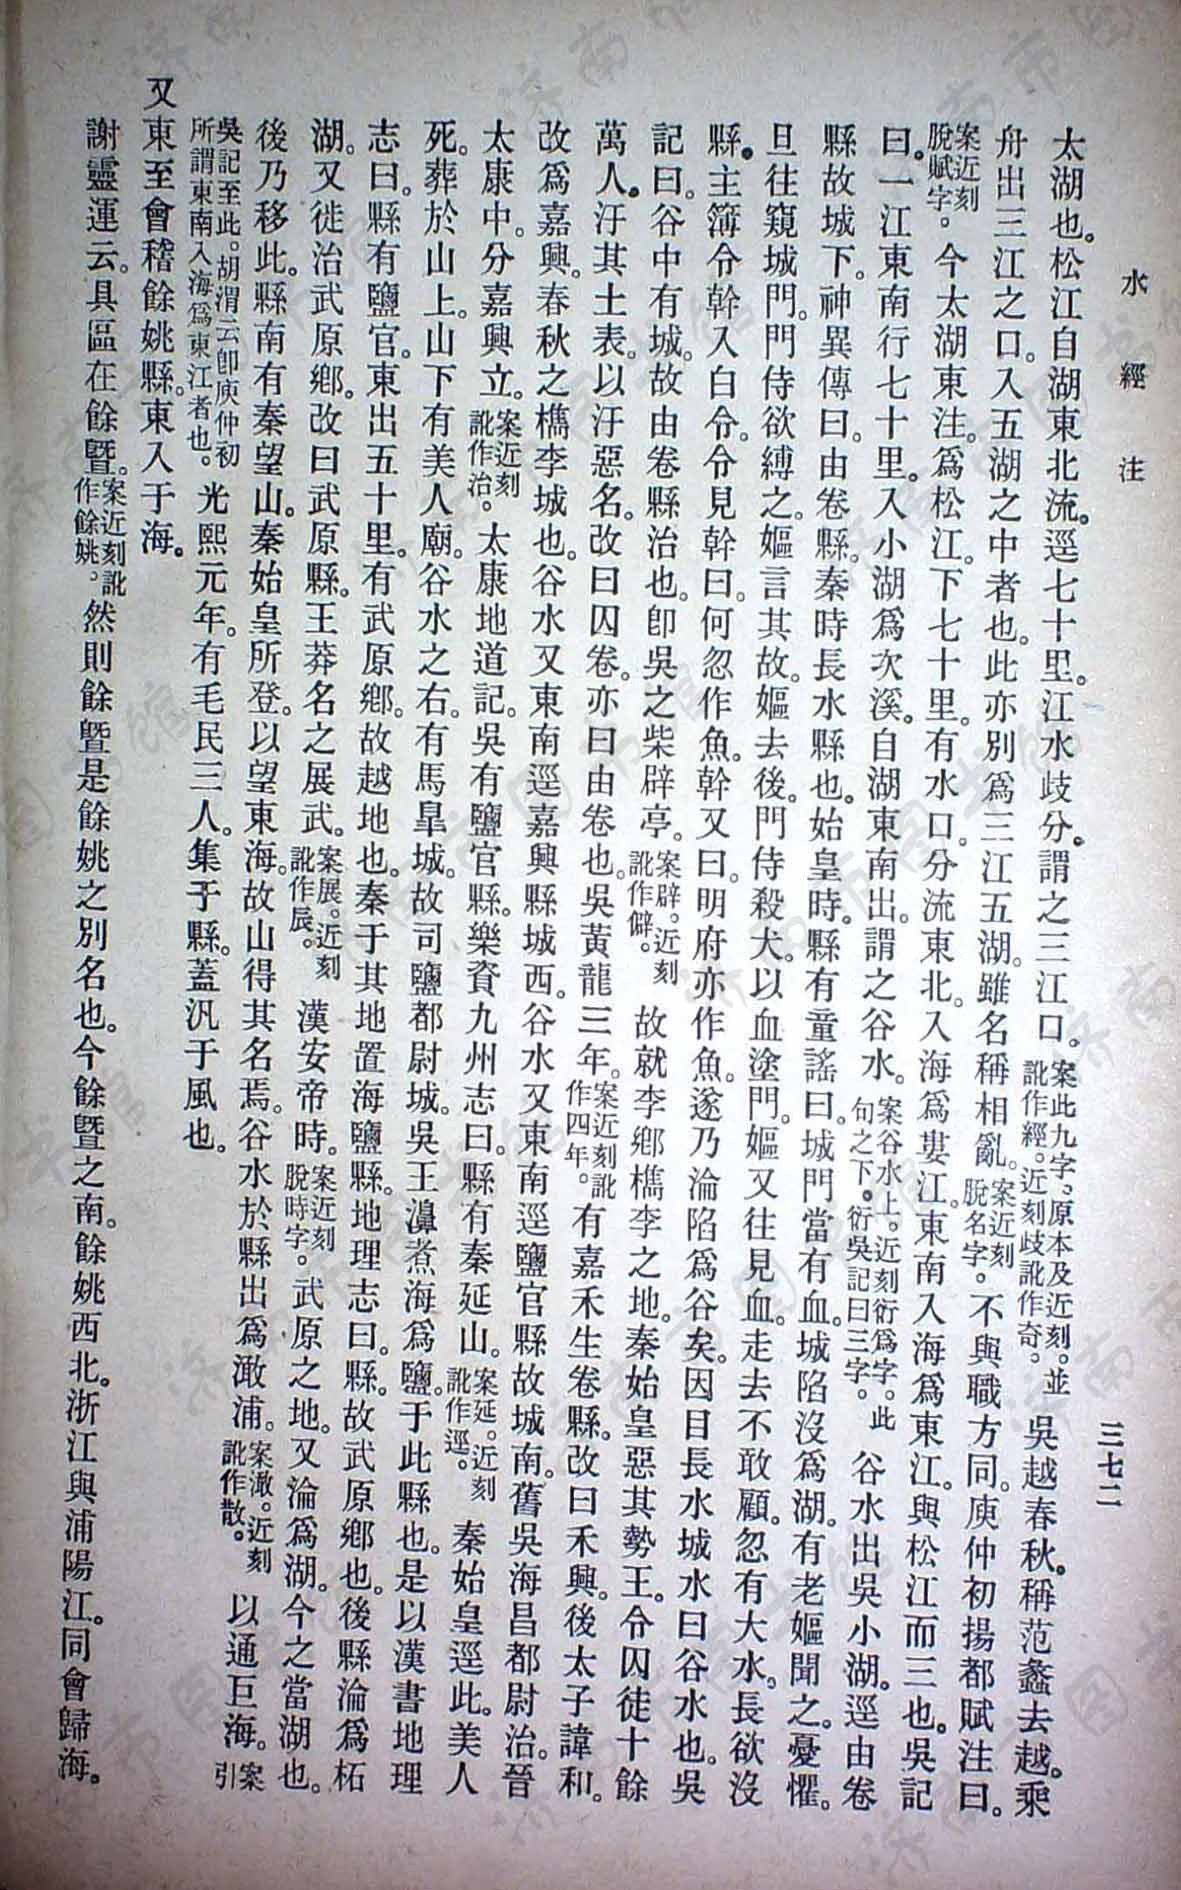 水經注
三七二
太湖也。松江自湖東北流。逕七十里。江水歧分。謂之三江口。案此九字。原本及近刻。並訛作經。近刻歧訛作奇。吳越春秋。稱范蠡去越。乘
舟出三江之口。入五湖之中者也。此亦別爲三江五湖。雖名稱相亂。案近刻脫名字。不與職方同。庾仲初揚都賦注曰。
案近刻脫賦字。今太湖東注。爲松江。下七十里。有水口。分流東北。入海爲婁江。東南入海爲東江。與松江而三也。吳記
曰。一江東南行七十里。入小湖爲次溪。自湖東南出。謂之谷水。案谷水上。近刻衍爲字。此句之下。衍吳記曰三字。谷水出吳小湖。逕由卷
縣故城下。神異傳曰。由卷縣。秦時長水縣也。始皇時。縣有童謠曰。城門當有血。城陷沒爲湖。有老嫗聞之。憂懼。
旦往窺城門。門侍欲縛之。嫗言其故。嫗去後。門侍殺犬。以血塗門。嫗又往見血。走去不敢顧。忽有大水。長欲沒
縣。主簿令幹入白令。令見幹曰。何忽作魚。幹又曰。明府亦作魚。遂乃淪陷爲谷矣。因目長水城水曰谷水也。吳
記曰。谷中有城。故由卷縣治也。卽吳之柴辟亭。案辟。近刻訛作僻。故就李鄉檇李之地。秦始皇惡其勢王。令囚徒十餘
萬人。汙其土表。以汙惡名。改曰囚卷。亦曰由卷也。吳黃龍三年。案近刻訛作四年。有嘉禾生卷縣。改曰禾興。後太子諱和。
改爲嘉興。春秋之檇李城也。谷水又東南逕嘉興縣城西。谷水又東南逕鹽官縣故城南。舊吳海昌都尉治。晉
太康中。分嘉興立。案近刻訛作治。太康地道記。吳有鹽官縣。樂資九州志曰。縣有秦延山。案延。近刻訛作逕。秦始皇逕此。美人
死。葬於山上。山下有美人廟。谷水之右。有馬皐城。故司鹽都尉城。吳王濞煮海爲鹽。于此縣也。是以漢書地理
志曰。縣有鹽官。東出五十里。有武原鄉。故越地也。秦于其地置海鹽縣。地理志曰。縣。故武原鄉也。後縣淪爲柘
湖。又徙治武原鄉。改曰武原縣。王莽名之展武。案展。近刻訛作辰。漢安帝時。案近刻脫時字。武原之地。又淪爲湖。今之當湖也。
後乃移此。縣南有秦望山。秦始皇所登。以望東海。故山得其名焉。谷水於縣出爲澉浦。案澉。近刻訛作散。以通巨海。案引
吳記至此。胡渭云卽庾仲初所謂東南入海爲東江者也。光熙元年。有毛民三人。集于縣。蓋汎于風也。
又東至會稽餘姚縣。東入于海。
謝靈運云。具區在餘暨。案近刻訛作餘姚。然則餘暨是餘姚之別名也。今餘暨之南。餘姚西北。浙江與浦陽江。同會歸海。